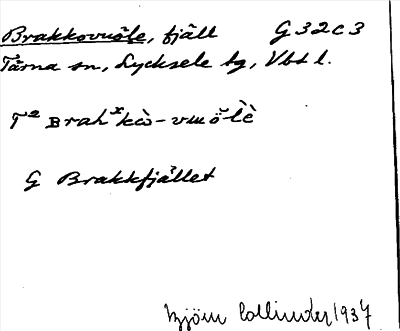 Brakkovuole, fjäll G 32 c 3
Tärna sn, Lycksele lg, Vbt l.
T² Brahˣkò-vuŏlè
G Brakkfjället
Björn Collinder 1937